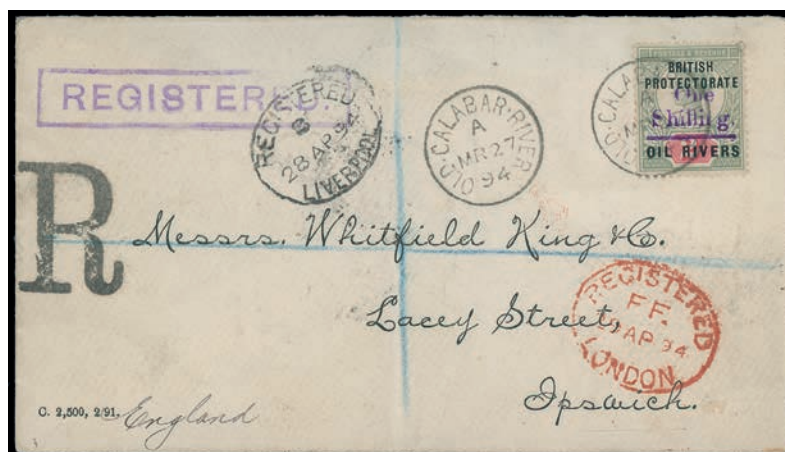 REGISTERED.
REGISTERED
28 AP 94
LIVERPOOL
OLD·CALABAR·RIVER
A
MR 27
94
OLD·CALABA
BRITISH
PROTECTORATE
One
Shilling.
OIL RIVERS
R
Messrs. Whitfield King & Co.
Lacey Street,
Ipswich.
REGISTERED
F F.
AP 94
LONDON
C. 2,500, 2/91.
England